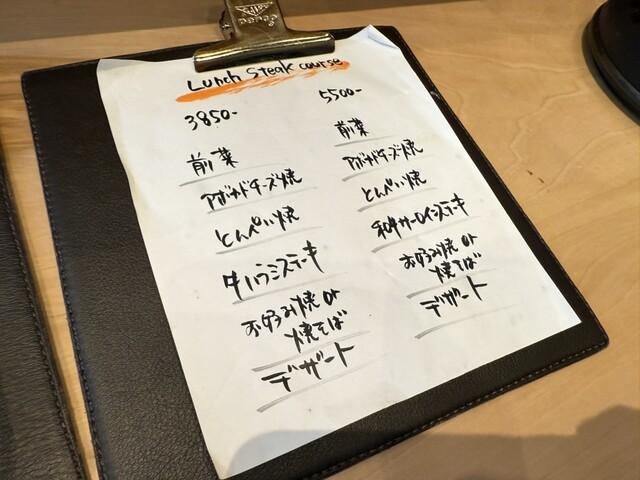 Lunch Steak course
3850-
前菜
アボカドチーズ焼
とんぺい焼
牛ハラミステーキ
お好み焼 or
焼そば
デザート
5500-
前菜
アボカドチーズ焼
とんぺい焼
和牛サーロインステーキ
お好み焼 or
焼そば
デザート